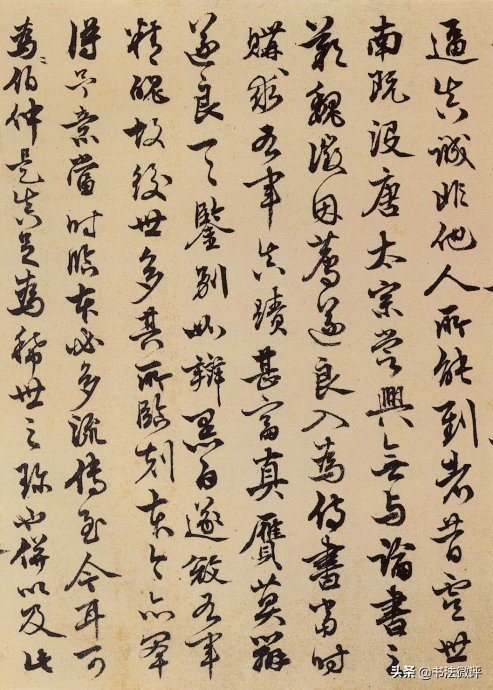 逼真誠非他人所能到者昔虞世
南既没唐太宗嘗興無與論書之
歎魏徵因薦遂良入為侍書當時
購求右軍真蹟甚富真贋莫辨
遂良鑒別如辨黑白遂敘右軍
精醜故後世多其所臨刻本今亦罕
得意當時臨本必多流傳至今耳可
為伯仲是真足為稀世之珍也併以及此
头条 @书法微评